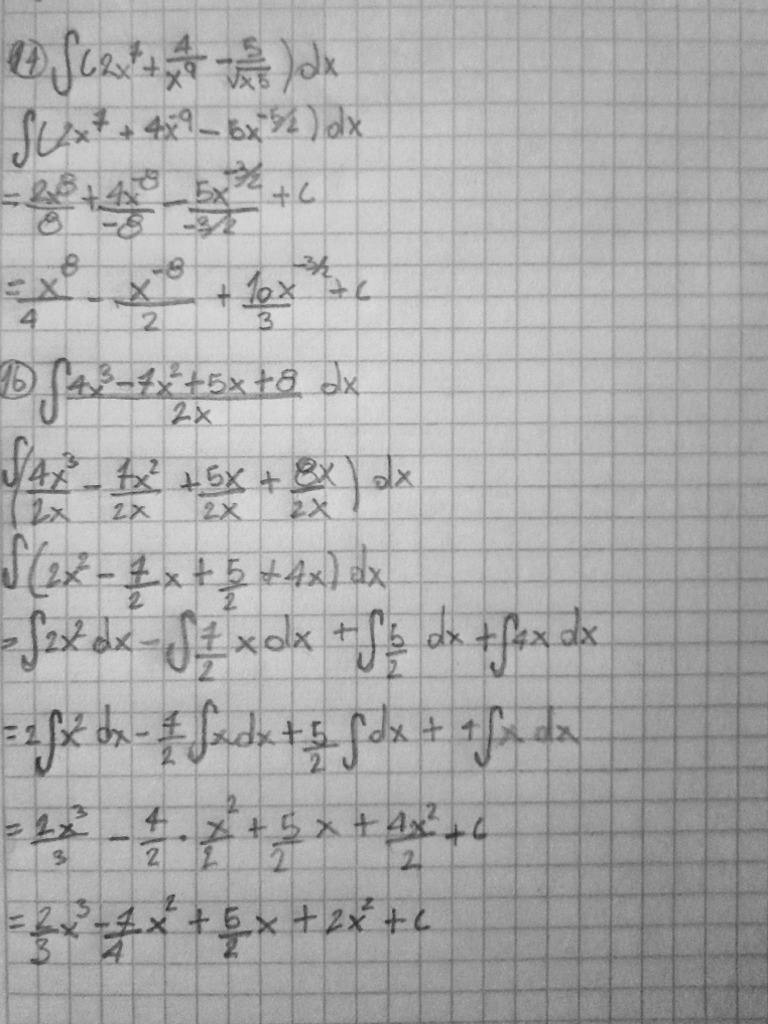 14) ∫(2x⁷ + 4/x⁹ - 5/√x⁵) dx
∫(2x⁷ + 4x⁻⁹ - 5x^(-5/2)) dx
= 2x⁸/8 + 4x⁻⁸/-8 - 5x^(-3/2)/(-3/2) + C
= x⁸/4 - x⁻⁸/2 + 10x^(-3/2)/3 + C
16) ∫ (4x³ - 7x² + 5x + 8)/2x dx
∫(4x³/2x - 7x²/2x + 5x/2x + 8x/2x) dx
∫(2x² - 7/2 x + 5/2 + 4x) dx
= ∫2x² dx - ∫7/2 x dx + ∫5/2 dx + ∫4x dx
= 2∫x² dx - 7/2 ∫x dx + 5/2 ∫dx + 4∫x dx
= 2x³/3 - 7/2 · x²/2 + 5/2 x + 4x²/2 + C
= 2/3 x³ - 7/4 x² + 5/2 x + 2x² + C